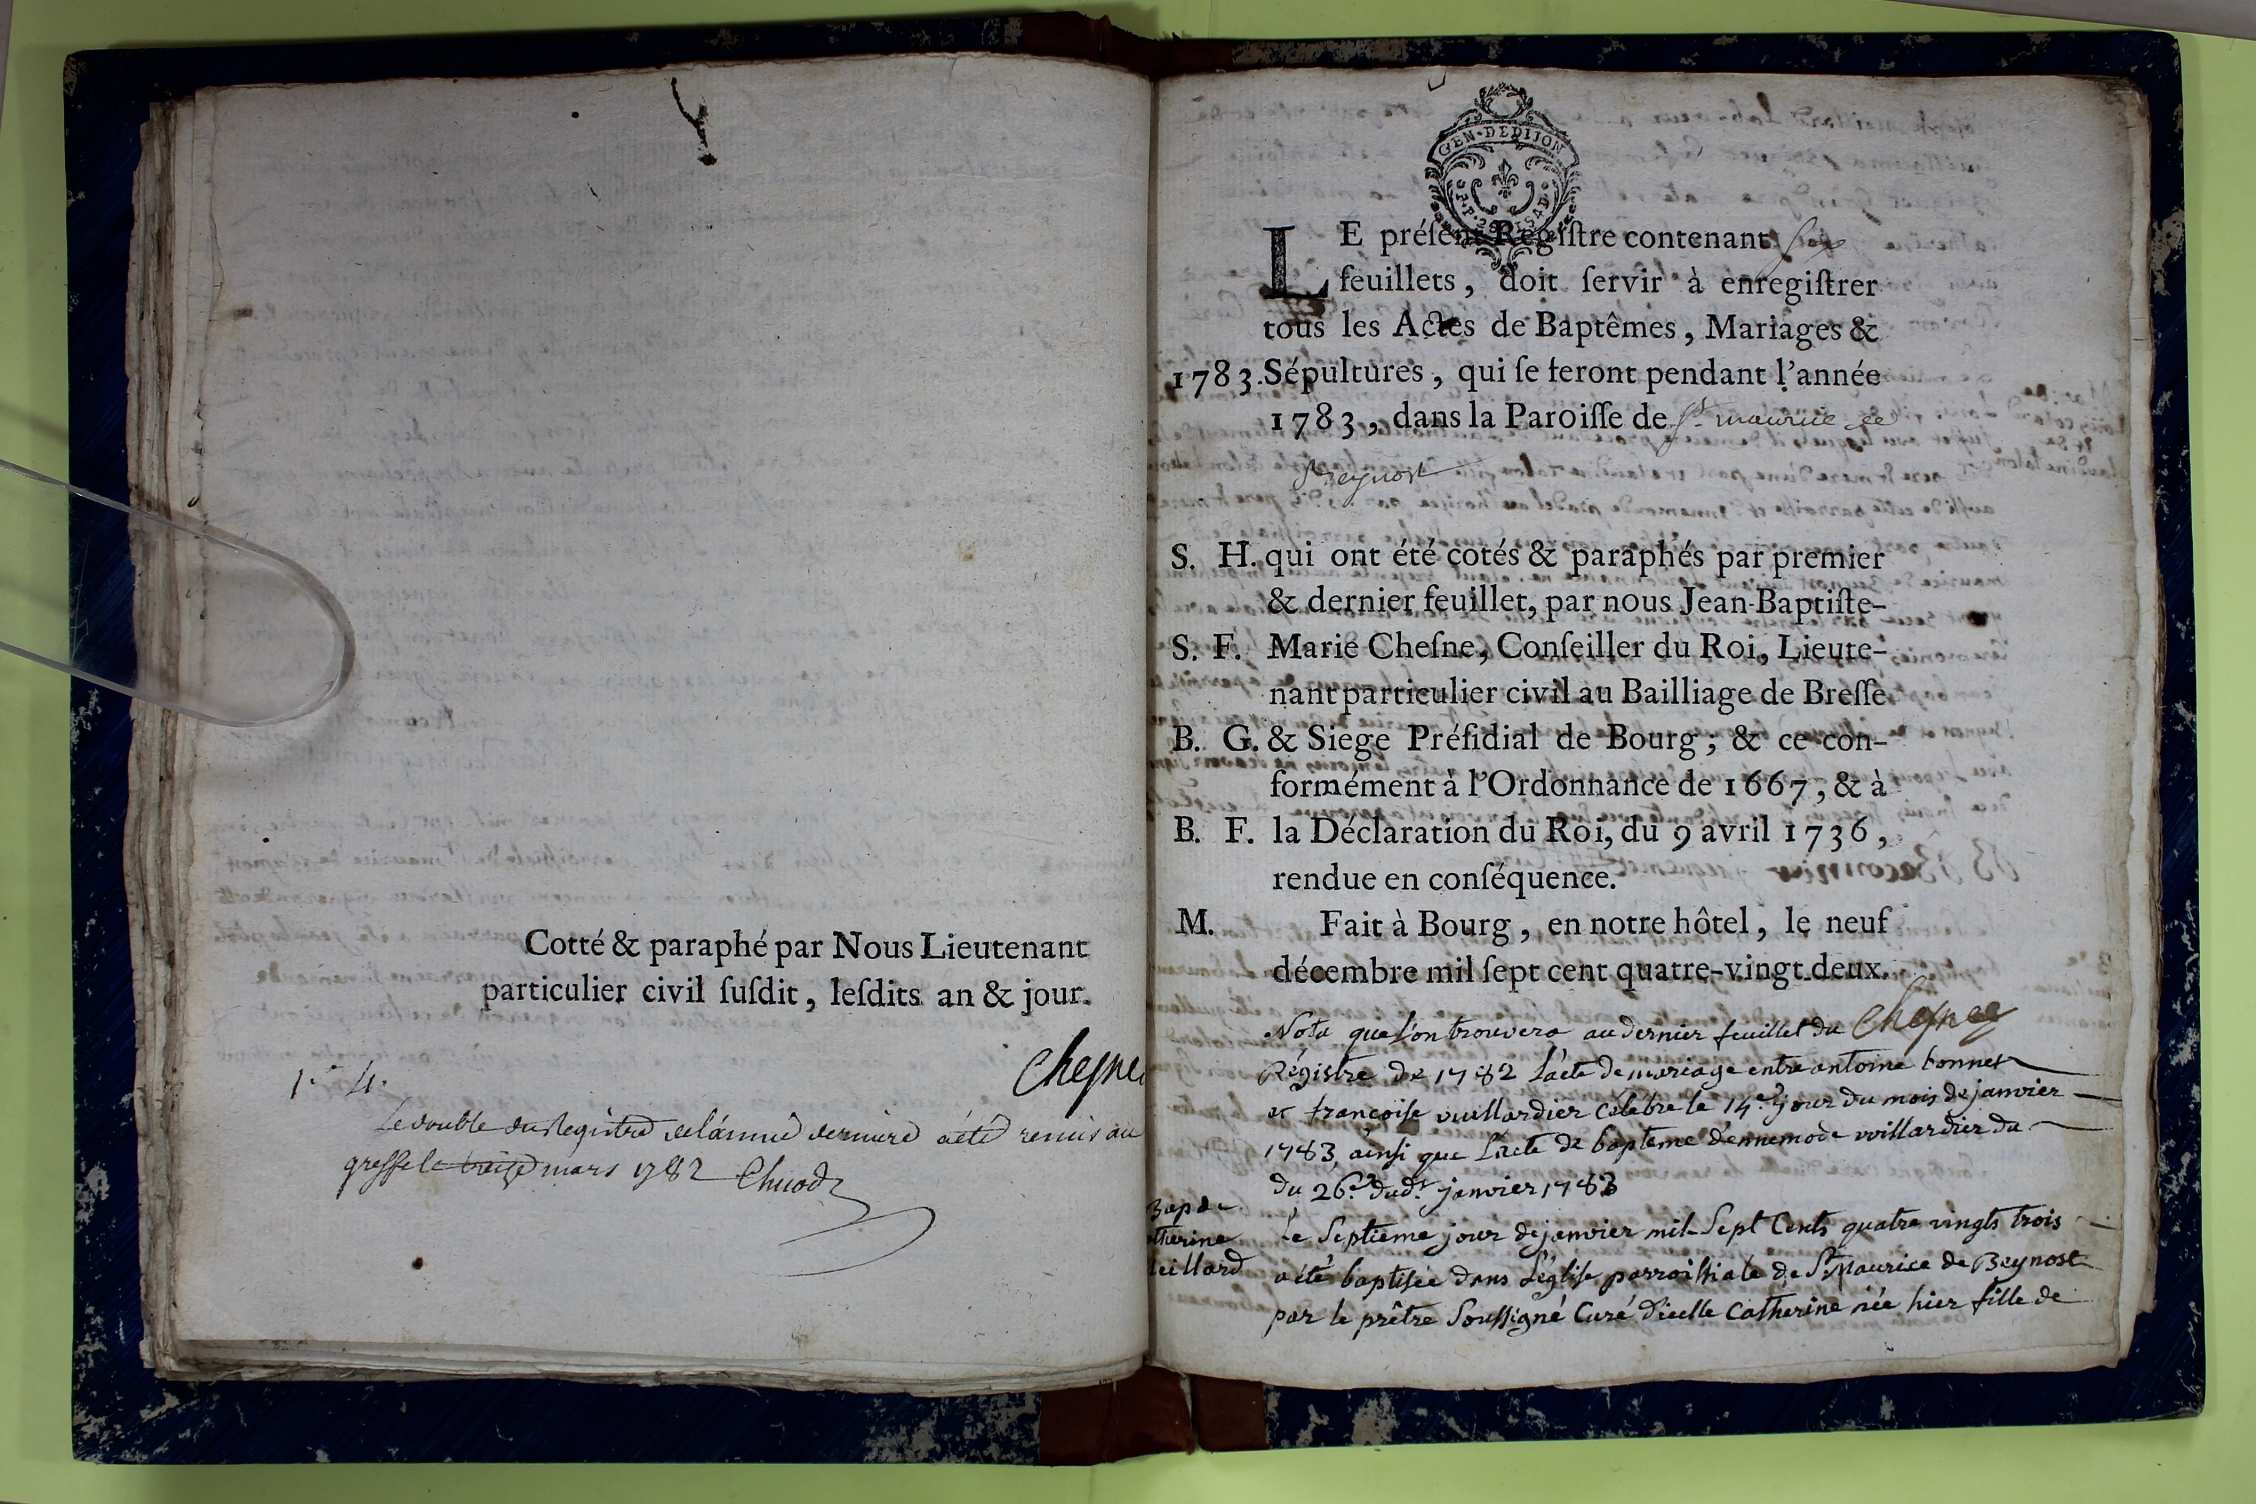 Cotté & paraphé par Nous Lieutenant
particulier civil ſuſdit, leſdits an & jour.
Cheſne
1. 4.
Le double du Registre de l'année derniere a été remis au
greffe le treize mars 1782
GEN·DEDIJON
LE préſent Regiſtre contenant six
feuillets, doit ſervir à enregiſtrer
tous les Actes de Baptêmes, Mariages &
1783. Sépultures, qui ſe feront pendant l'année
1783, dans la Paroiſſe de St. maurice de
Beynost
S. H. qui ont été cotés & paraphés par premier
& dernier feuillet, par nous Jean-Baptiſte-
S. F. Marie Cheſne, Conſeiller du Roi, Lieute-
nant particulier civil au Bailliage de Breſſe
B. G. & Siege Préſidial de Bourg; & ce con-
formément à l'Ordonnance de 1667, & à
B. F. la Déclaration du Roi, du 9 avril 1736,
rendue en conſéquence.
M. Fait à Bourg, en notre hôtel, le neuf
décembre mil ſept cent quatre-vingt deux.
Cheſne
Nota que l'on trouvera au dernier feuillet du
Régistre de 1782 l'acte de mariage entre antoine bonnet
et françoise vuillardier célébre le 14e. jour du mois de janvier
1783, ainsi que l'acte de bapteme d'ennemode voillardier du
du 26e. dudt. janvier 1783
Bap de
therine
leillard
Le Septieme jour de janvier mil Sept Cents quatre vingts trois
a été baptisée dans l'église parroissiale de St Maurice de Beynost
par le prêtre Soussigné Curé d'icelle Catherine née hier fille de